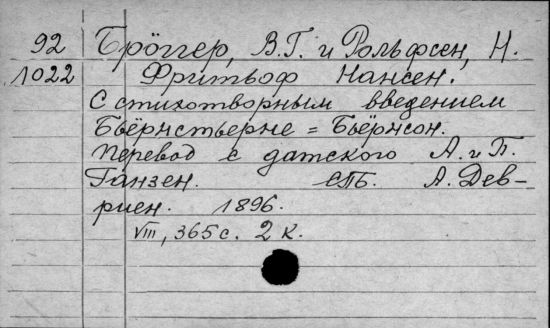 92 Брёггер, В.Г. и Рольфсен, Н.
1022 Фритьоф Нансен.
С стихотворным введением
Бьёрнстьерне = Бьёрнсон.
Перевод с датского А. и П.
Ганзен. СПБ. А. Дев-
риен. 1896.
VIII, 365 с. 2 к.